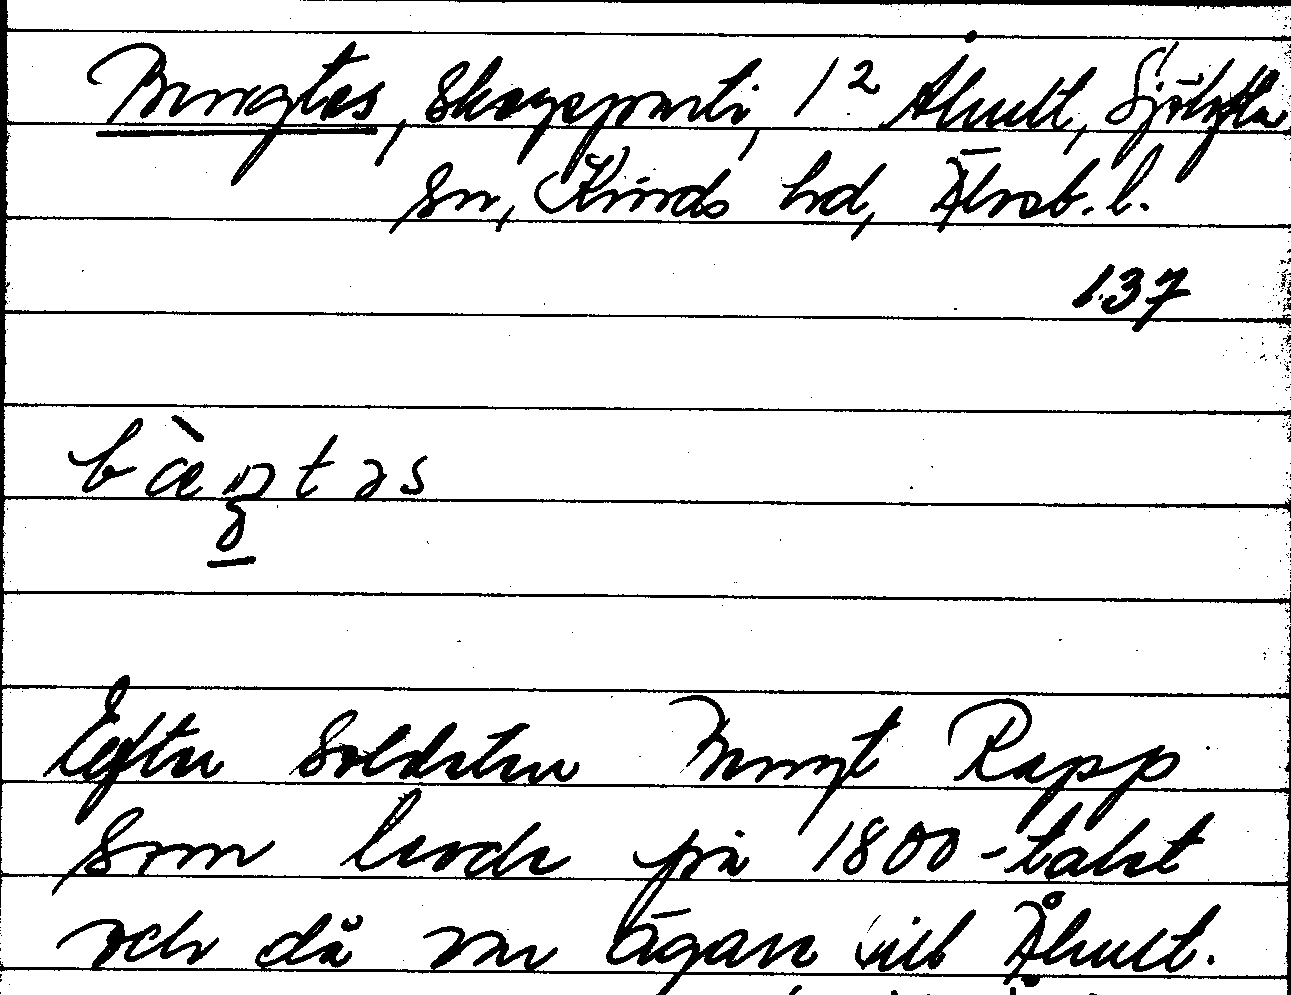 Bengtas, Skogsparti, 1² Ålhult, Sjötofta
sn, Kinds hd, Älvsb. l.
137
bæ̀ŋtəs
Efter soldaten Bengt Rapp
som levde på 1800-talet
och då var ägare till Ålhult.